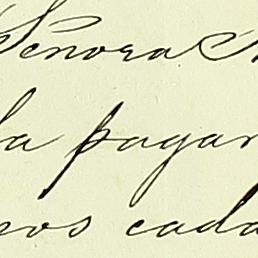 Señora
la pagar
nos cada